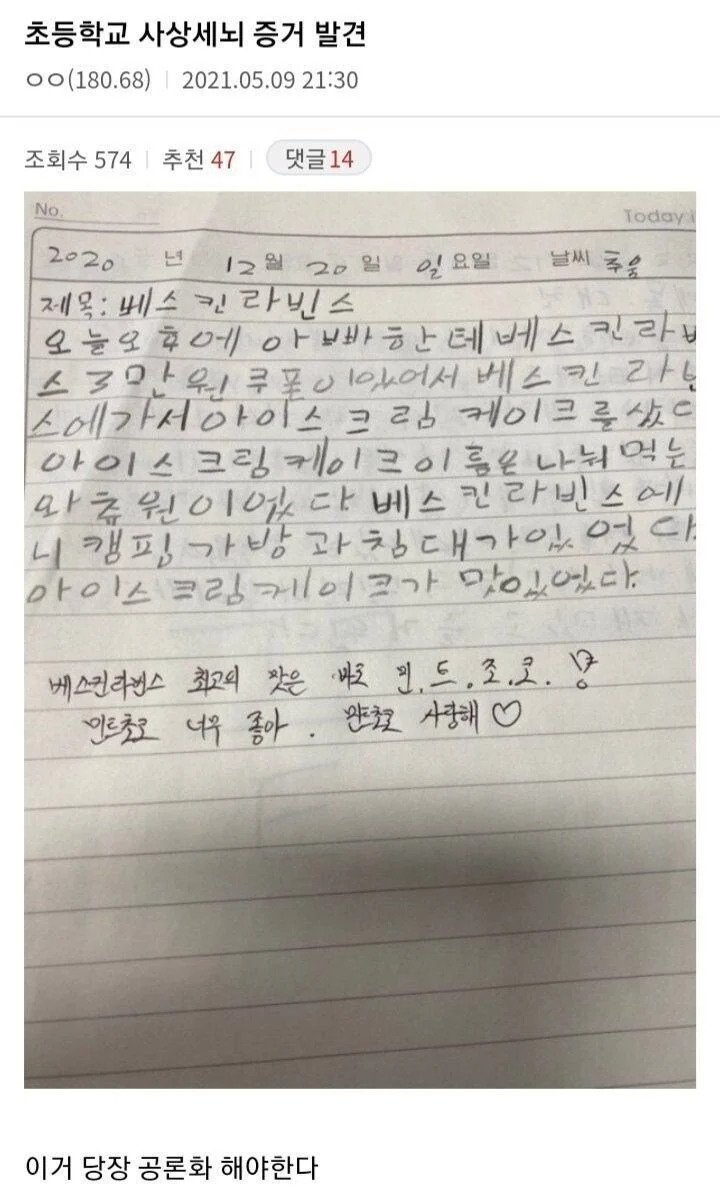 초등학교 사상세뇌 증거 발견
ㅇㅇ(180.68) 2021.05.09 21:30
조회수 574 추천 47 댓글 14
No. Today
2020 년 12월 20일 일요일 날씨 추움
제목: 베스킨라빈스
오늘오후에 아빠한테베스킨라
스 3만원쿠폰이있어서 베스킨라
스에가서아이스크림 케이크를샀
아이스크림케이크이름은나눠먹는
와츄원이었다 베스킨라빈스에
니 캠핑가방과침대가있었다
아이스크림케이크가 맛있었다.
베스킨라빈스 최고의 맛은 바로 민.트.초.코.
민트초코 너무 좋아. 민트초코 사랑해♡
이거 당장 공론화 해야한다